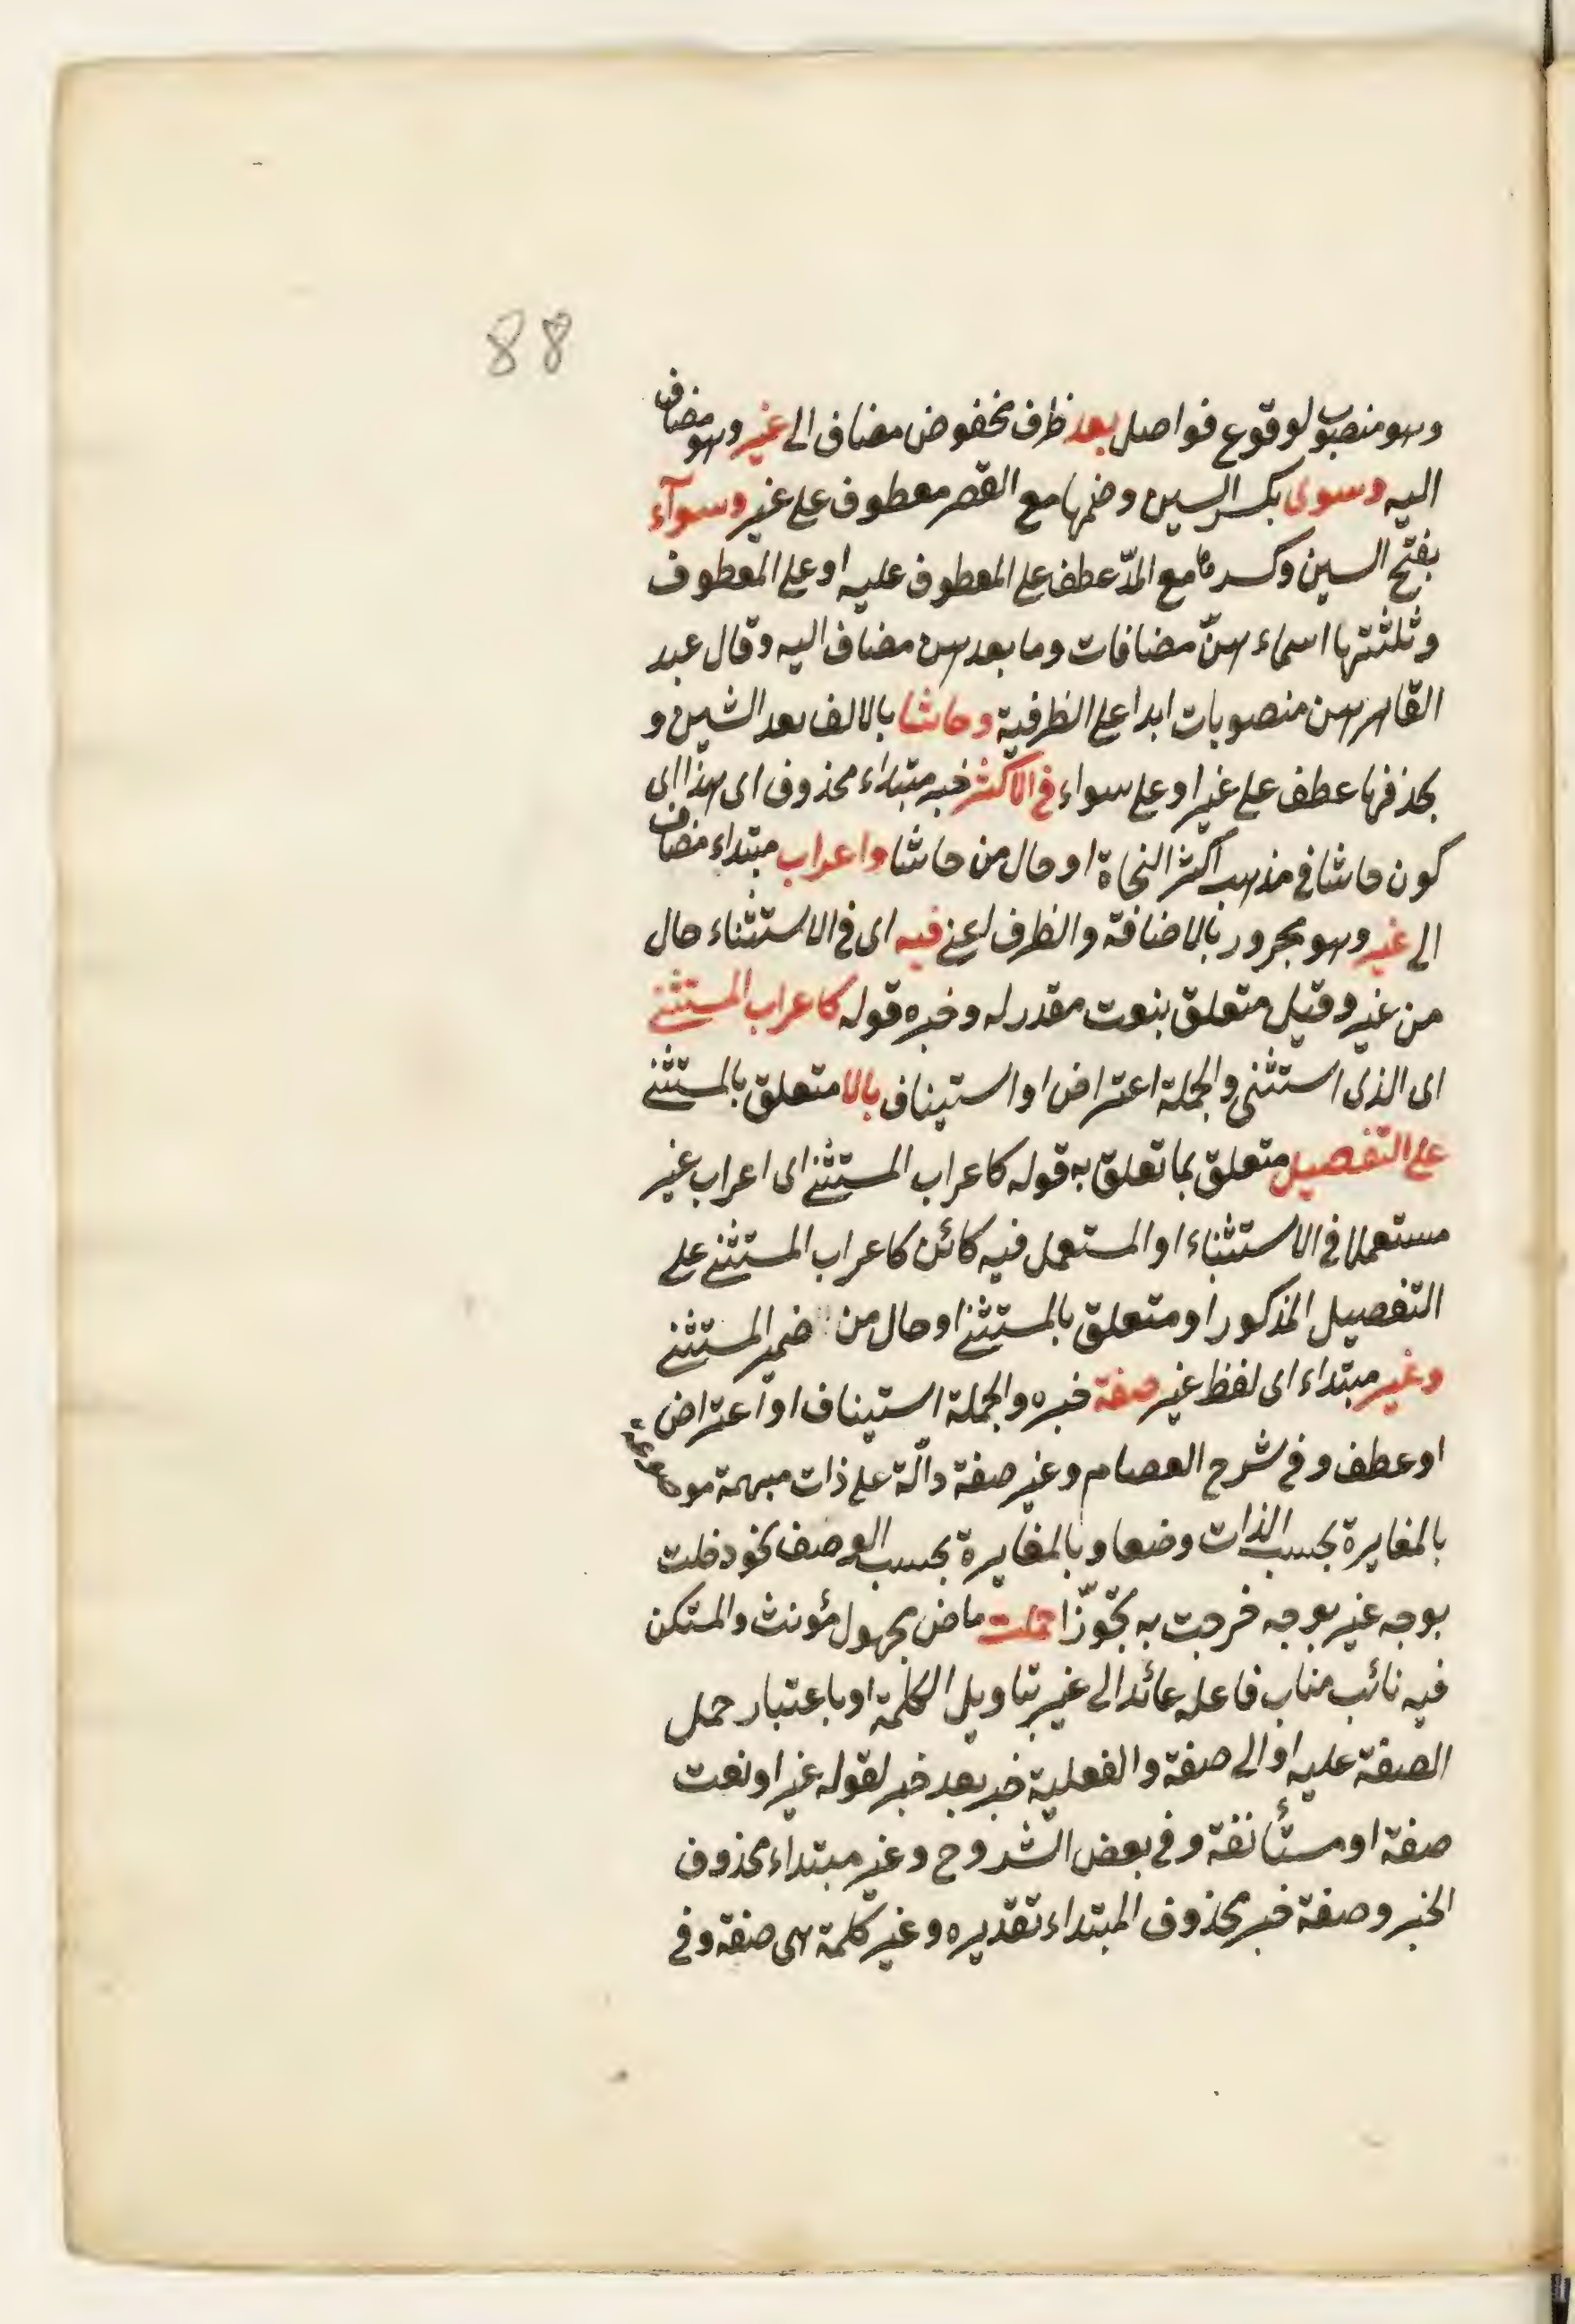 88
وهو منصوب لوقوع فواصل بعد ظرف مخفوض مضاف الى غير وهو مضاف
اليه وسوى بكسر السين وضمها مع القصر معطوف على غير وسوآء
بفتح السين وكسرها مع المدّ عطف على المعطوف عليه او على المعطوف
وثلثتها اسماء هنّ مضافات وما بعدهن مضاف اليه وقال عبد
القاهر هن منصوبات ابدا على الظرفية وحاشا بالالف بعد الشين و
بحذفها عطف على غير او على سواء فى الاكثر خبر مبتداء محذوف اى هذا اى
كون حاشا فى مذهب اكثر النحاة او حال من حاشا واعراب مبتداء مضاف
الى غير وهو مجرور بالاضافة والظرف اعنى فيه اى فى الاستثناء حال
من غير وقيل متعلق بنعت مقدر له وخبره قوله كاعراب المستثنى
اى الذى استثنى والجملة اعتراض او استيناف بالا متعلق بالمستثنى
على التفصيل متعلق بما تعلق به قوله كاعراب المستثنى اى اعراب غير
مستعملا فى الاستثناء او المستعمل فيه كائن كاعراب المستثنى على
التفصيل المذكور او متعلق بالمستثنى او حال من ضمير المستثنى
وغير مبتداء اى لفظ غير صفة خبره والجملة استيناف او اعتراض
او عطف وفى شرح العصام وغير صفة دالّة على ذات مبهمة موصوفة
بالمغايرة بحسب الذات وضعا وبالمغايرة بحسب الوصف نحو دخلت
بوجه غير بوجه خرجت به تجوّزا حملت ماض مجهول مؤنث والمتكن
فيه نائب مناب فاعله عائد الى غير بتاويل الكلمة او باعتبار حمل
الصفة عليه او الى صفة والفعلية خبر بعد خبر لقوله غير او نعت
صفة او مستأنفة وفى بعض الشروح وغير مبتداء محذوف
الخبر وصفة خبر محذوف المبتداء تقديره وغير كلمة هى صفة وفى